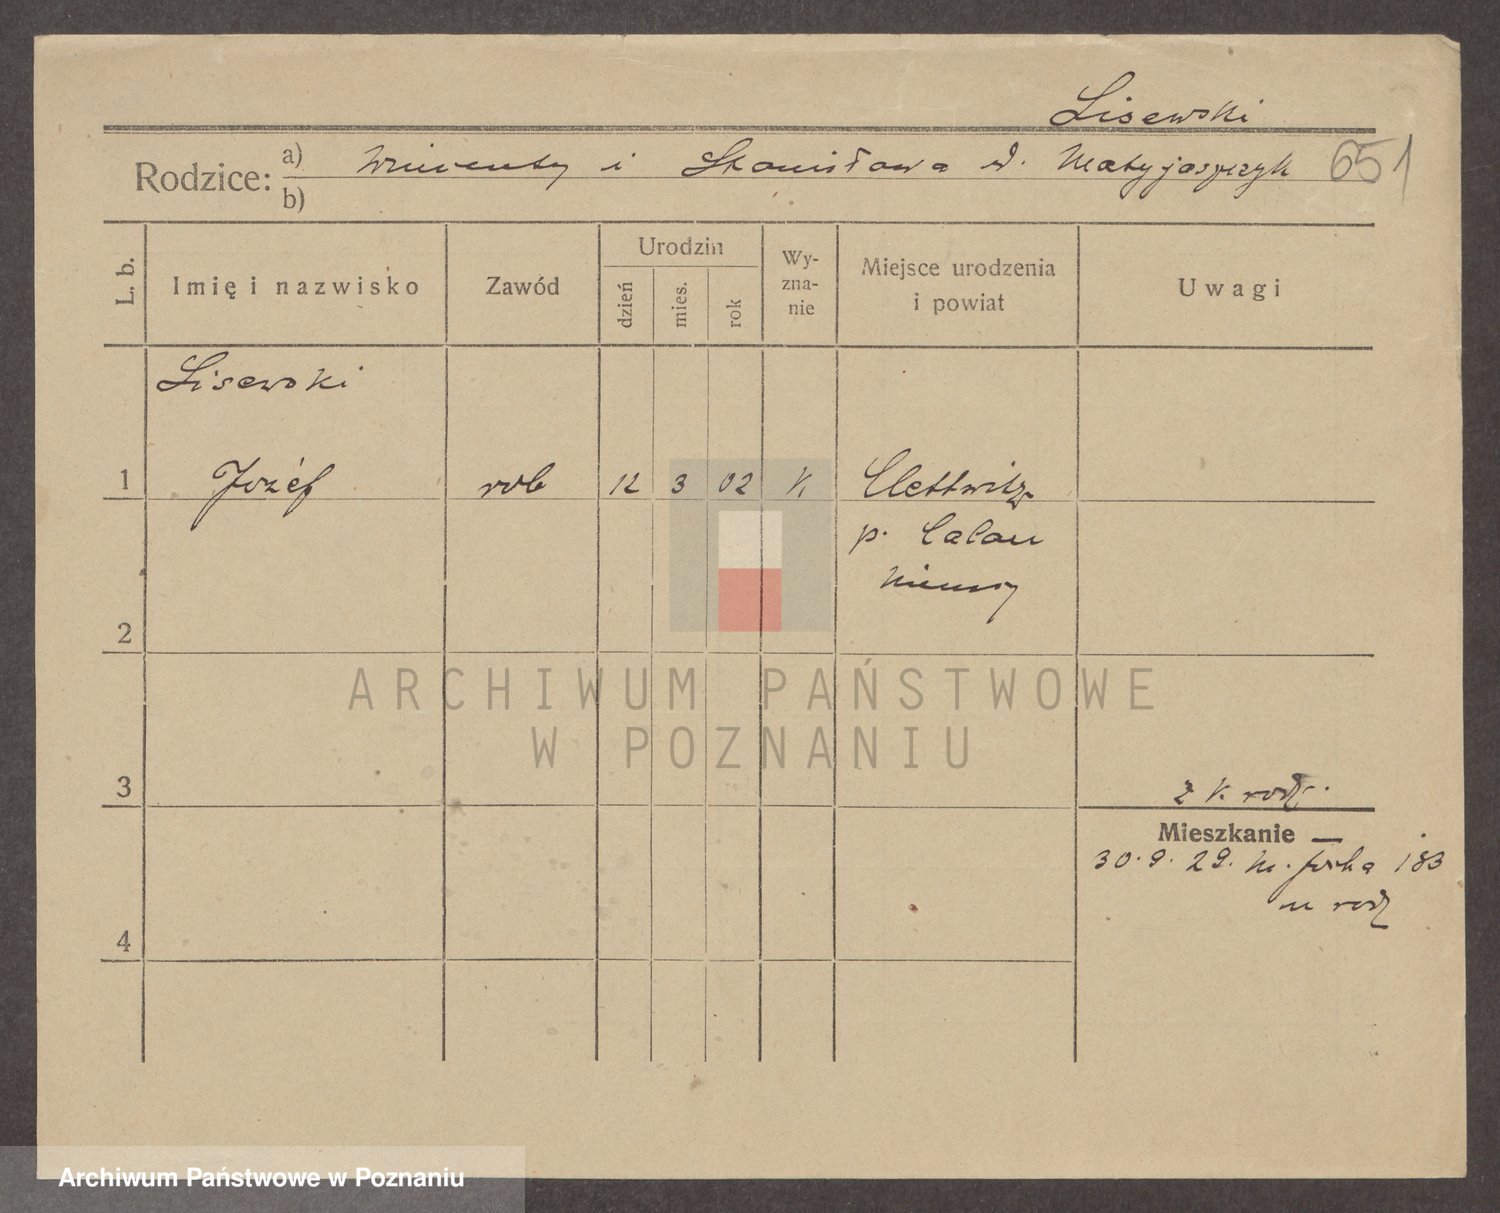 Lisewski
Rodzice: a) Wincenty i Stanisława d. Matyjaszczyk 651
b)
L. b. Imię i nazwisko Zawód Urodzin dzień mies. rok Wyznanie Miejsce urodzenia i powiat Uwagi
Lisewski
1 Józef rob 12 3 02 K Clettwitz
p. Calau
Niemcy
2
ARCHIWUM PAŃSTWOWE
W POZNANIU
3 z k. rodz.
Mieszkanie —
30.9.29. 183
u rodz
4
Archiwum Państwowe w Poznaniu